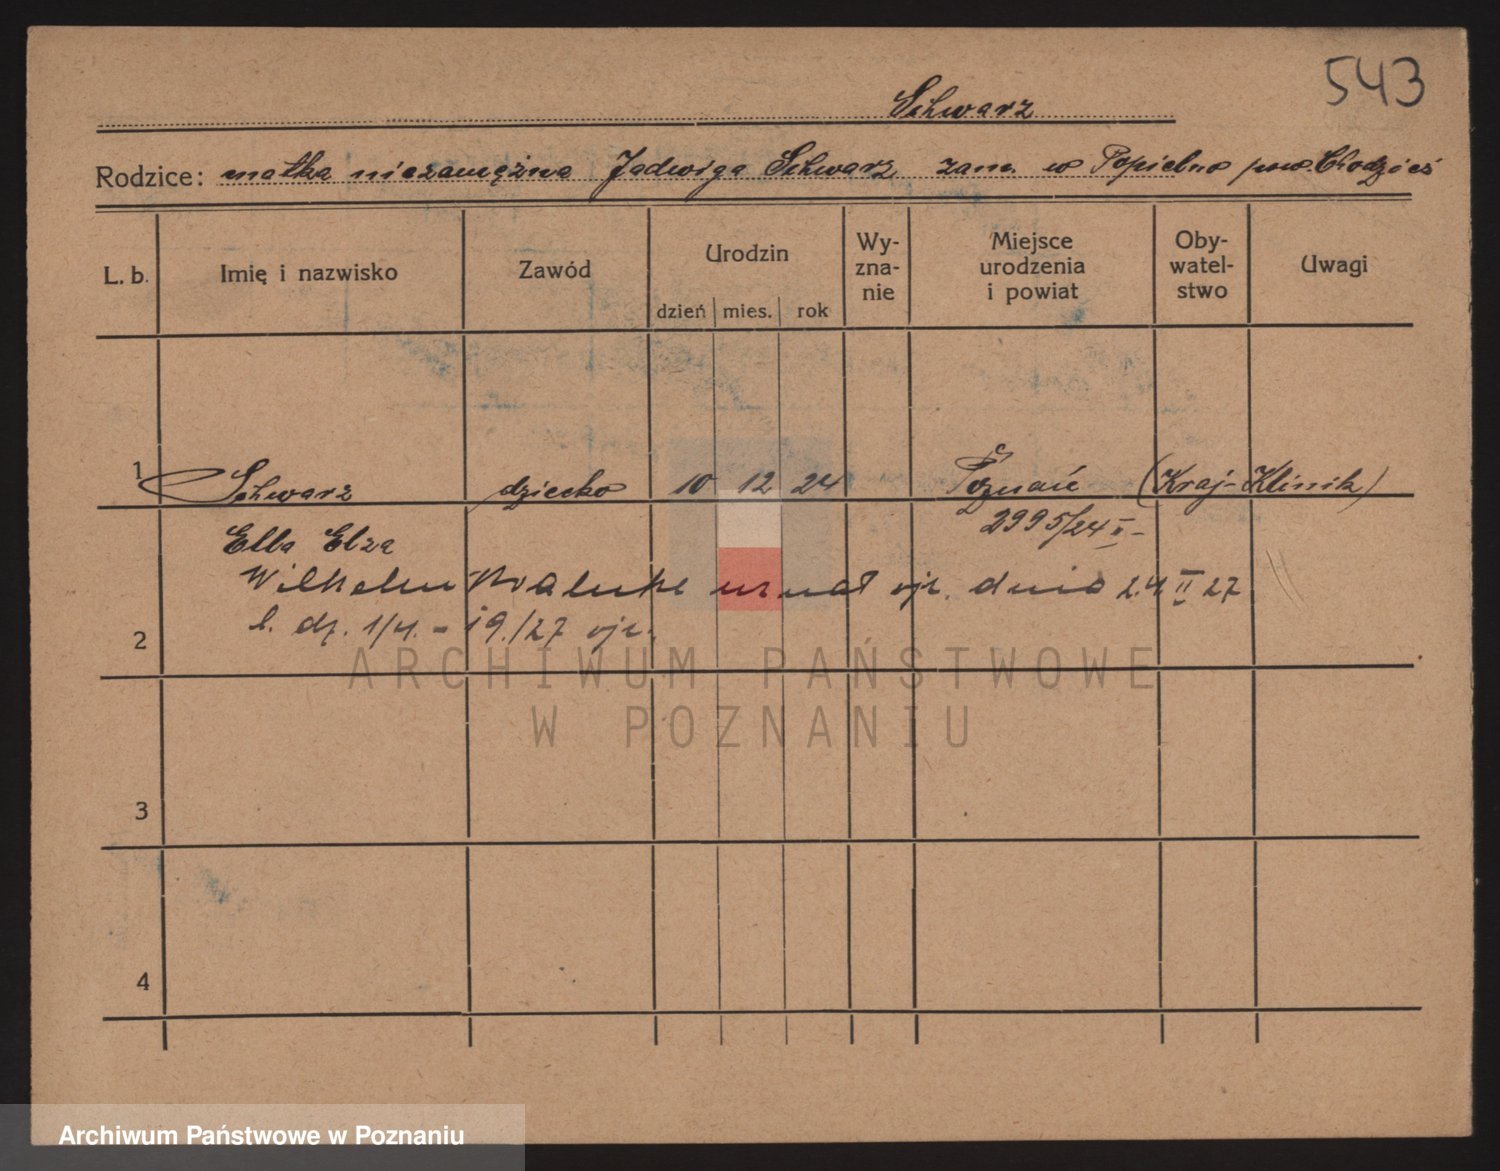 543
Schwarz
Rodzice: matka niezamężna Jadwiga Schwarz zam. w Popielno pow. Chodzież
L. b. Imię i nazwisko Zawód Urodzin dzień mies. rok Wy-zna-nie Miejsce urodzenia i powiat Oby-watel-stwo Uwagi
1 Schwarz dziecko 10 12 24 Poznań (Kraj-Klinik)
2995/24 II
Elba Elza
Wilhelm uznał ojc. dnia 2.4 II 27
2 l. dz. 1/4. - 19./27 ojc.
ARCHIWUM PAŃSTWOWE
W POZNANIU
3
4
Archiwum Państwowe w Poznaniu